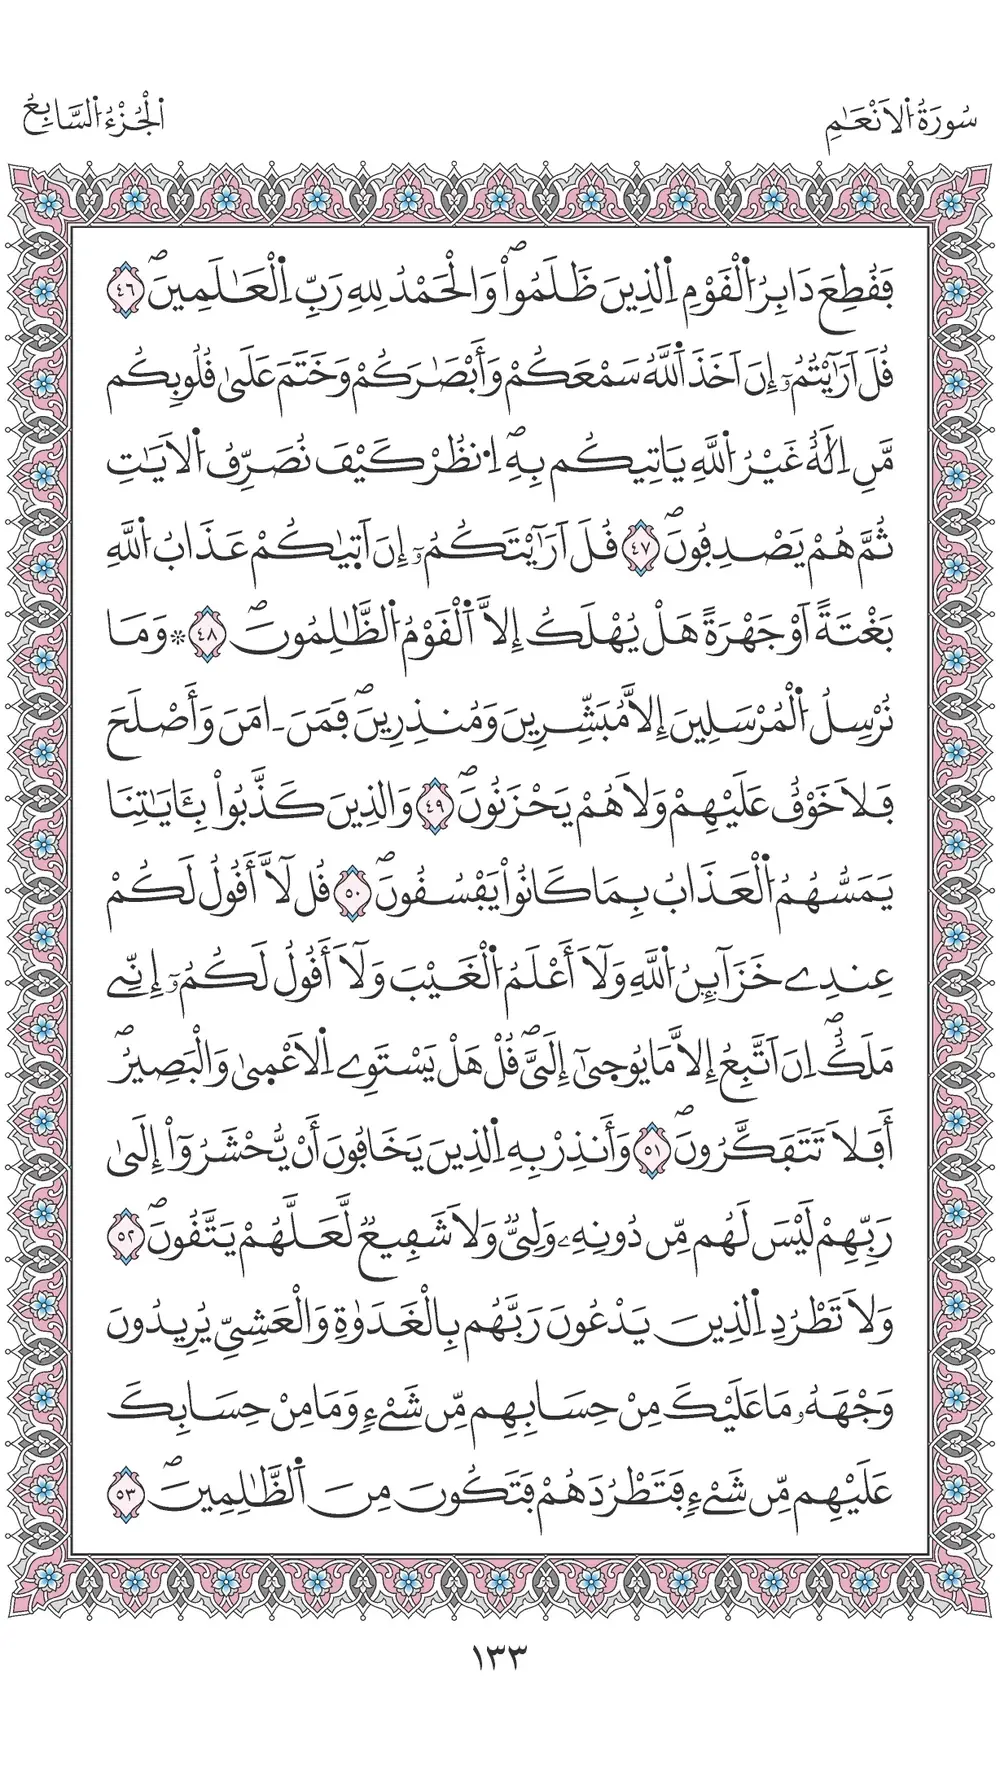 سُورَةُ اُ۬لَانْعَٰمِ
اَ۬لْجُزْءُ اُ۬لسَّابِعُ
فَقُطِعَ دَابِرُ اُ۬لْقَوْمِ اِ۬لذِينَ ظَلَمُواْۖ وَالْحَمْدُ لِلهِ رَبِّ اِ۬لْعَٰلَمِينَۖ ٤٦
قُلَ اَرَٰٓيْتُمُۥٓ إِنَ اَخَذَ اَ۬للَّهُ سَمْعَكُمْ وَأَبْصَٰرَكُمْ وَخَتَمَ عَلَىٰ قُلُوبِكُم
مَّنِ اِلَٰهٌ غَيْرُ اُ۬للَّهِ يَاتِيكُم بِهِۖ اِ۟نظُرْ كَيْفَ نُصَرِّفُ اُ۬لَايَٰتِ
ثُمَّ هُمْ يَصْدِفُونَۖ ٤٧ قُلَ اَرَٰٓيْتَكُمُۥٓ إِنَ اَت۪يٰكُمْ عَذَابُ اُ۬للَّهِ
بَغْتَةً اَوْ جَهْرَةً هَلْ يُهْلَكُ إِلَّا اَ۬لْقَوْمُ اُ۬لظَّٰلِمُونَۖ ٤٨ ۞ وَمَا
نُرْسِلُ اُ۬لْمُرْسَلِينَ إِلَّا مُبَشِّرِينَ وَمُنذِرِينَۖ فَمَنَ ـ امَنَ وَأَصْلَحَ
فَلَا خَوْفٌ عَلَيْهِمْ وَلَا هُمْ يَحْزَنُونَۖ ٤٩ وَالذِينَ كَذَّبُواْ بِـَٔايَٰتِنَا
يَمَسُّهُمُ اُ۬لْعَذَابُ بِمَا كَانُواْ يَفْسُقُونَۖ ٥٠ قُل لَّآ أَقُولُ لَكُمْ
عِندِے خَزَآئِنُ اُ۬للَّهِ وَلَآ أَعْلَمُ اُ۬لْغَيْبَ وَلَآ أَقُولُ لَكُمُۥٓ إِنِّے
مَلَكٌۖ اِنَ اَتَّبِعُ إِلَّا مَا يُوح۪ىٰٓ إِلَيَّۖ قُلْ هَلْ يَسْتَوِے اِ۬لَاعْم۪ىٰ وَالْبَصِيرُۖ
أَفَلَا تَتَفَكَّرُونَۖ ٥١ وَأَنذِرْ بِهِ اِ۬لذِينَ يَخَافُونَ أَنْ يُّحْشَرُوٓاْ إِلَىٰ
رَبِّهِمْ لَيْسَ لَهُم مِّن دُونِهِۦ وَلِيٌّ وَلَا شَفِيعٌ لَّعَلَّهُمْ يَتَّقُونَۖ ٥٢
وَلَا تَطْرُدِ اِ۬لذِينَ يَدْعُونَ رَبَّهُم بِالْغَدَوٰةِ وَالْعَشِيِّ يُرِيدُونَ
وَجْهَهُۥ مَا عَلَيْكَ مِنْ حِسَابِهِم مِّن شَےْءٖ وَمَا مِنْ حِسَابِكَ
عَلَيْهِم مِّن شَےْءٖ فَتَطْرُدَهُمْ فَتَكُونَ مِنَ اَ۬لظَّٰلِمِينَۖ ٥٣
١٣٣